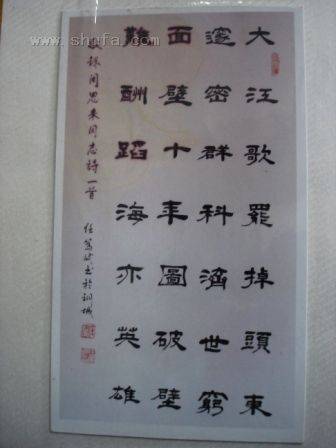 大江歌罷掉頭東
邃密群科濟世窮
面壁十年圖破壁
難酬蹈海亦英雄
録周恩来同志詩一首
任 书於 城
www.shufa.com